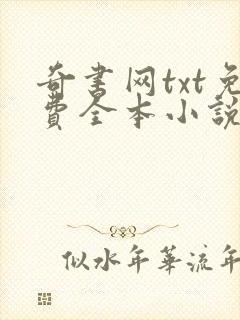 奇書网txt免
費全本小説
似水年華流年